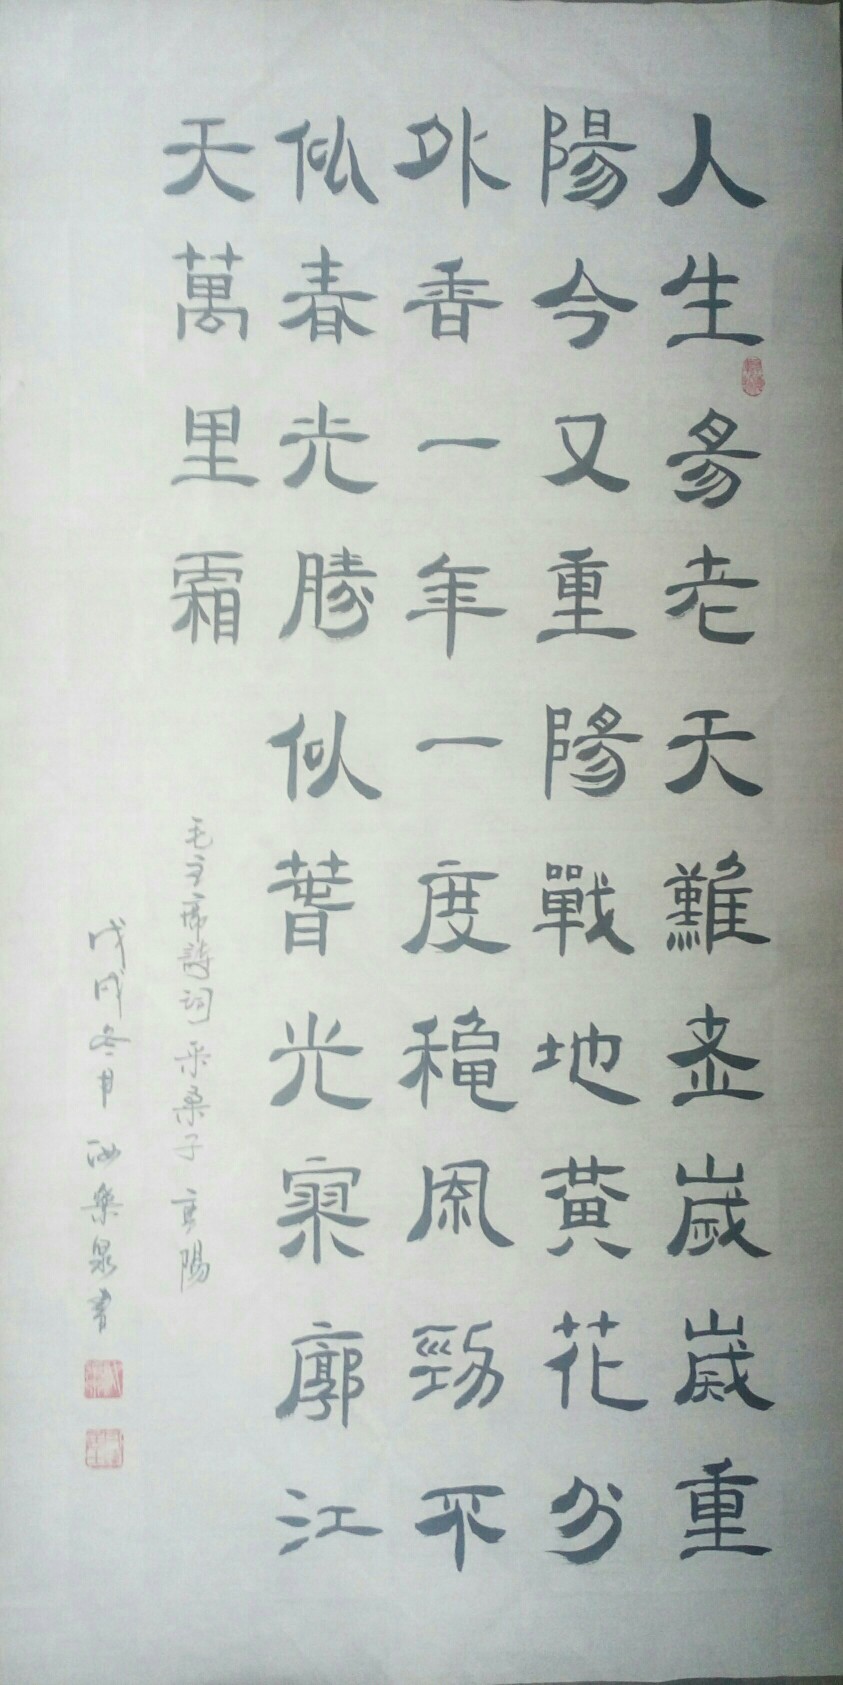 人生易老天難老歲歲重
陽今又重陽戰地黃花分
外香一年一度穐風勁不
似春光勝似春光寥廓江
天萬里霜
毛主席詩詞采桑子重陽
戊戌冬月 樂泉書